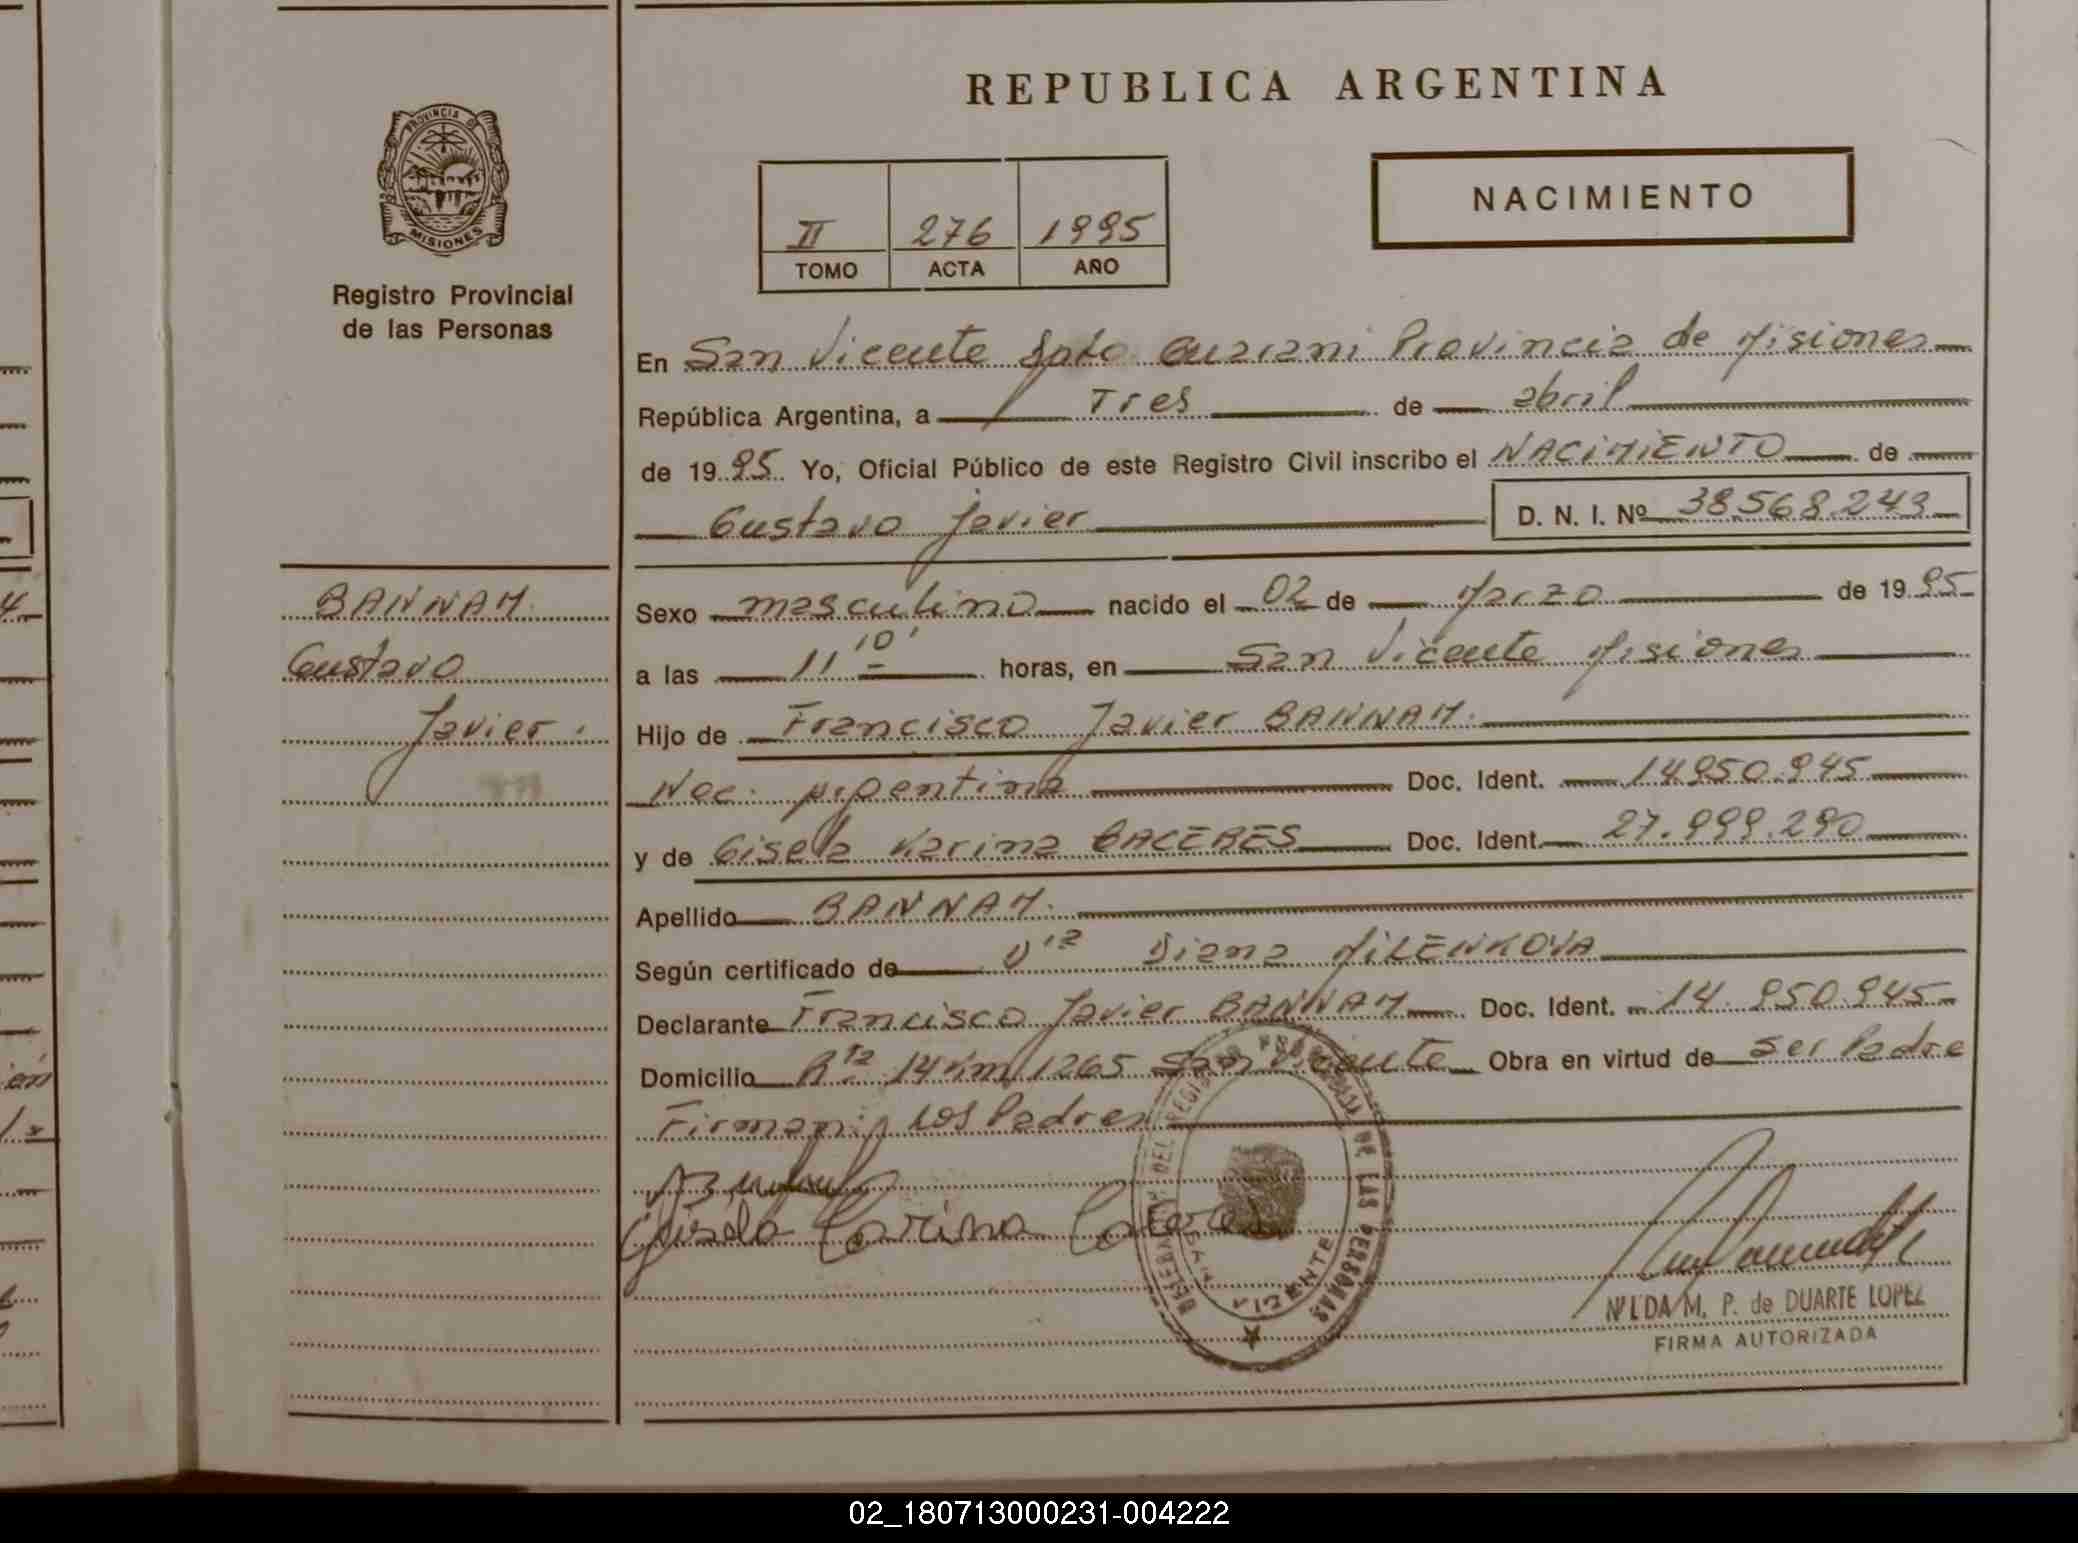 REPUBLICA ARGENTINA
PROVINCIA DE
MISIONES
Registro Provincial
de las Personas
NACIMIENTO
II 276 1995
TOMO ACTA AÑO
En San Vicente Dpto Guarani Provincia de Misiones
República Argentina, a Tres de abril
de 1995 Yo, Oficial Público de este Registro Civil inscribo el NACIMIENTO de
Gustavo Javier D. N. I. Nº 38.568.243
BANNAM.
Gustavo
Javier.
Sexo masculino nacido el 02 de Marzo de 1995
a las 11 10' horas, en San Vicente Misiones
Hijo de Francisco Javier BANNAM.
Nac. Argentina Doc. Ident. 14.950.945
y de Gisela Karina CACERES Doc. Ident. 27.999.290
Apellido BANNAM.
Según certificado de Dra Diana MILENKOVA
Declarante Francisco Javier BANNAM Doc. Ident. 14.950.945
Domicilio Rta 14 Km 1265 San Vicente Obra en virtud de ser Padre
Firman: Los Padres
Gisela Carina Caceres
DEL REGISTRO PROVINCIAL DE LAS PERSONAS
SAN VICENTE
M. P. de DUARTE LOPEZ
FIRMA AUTORIZADA
02_180713000231-004222